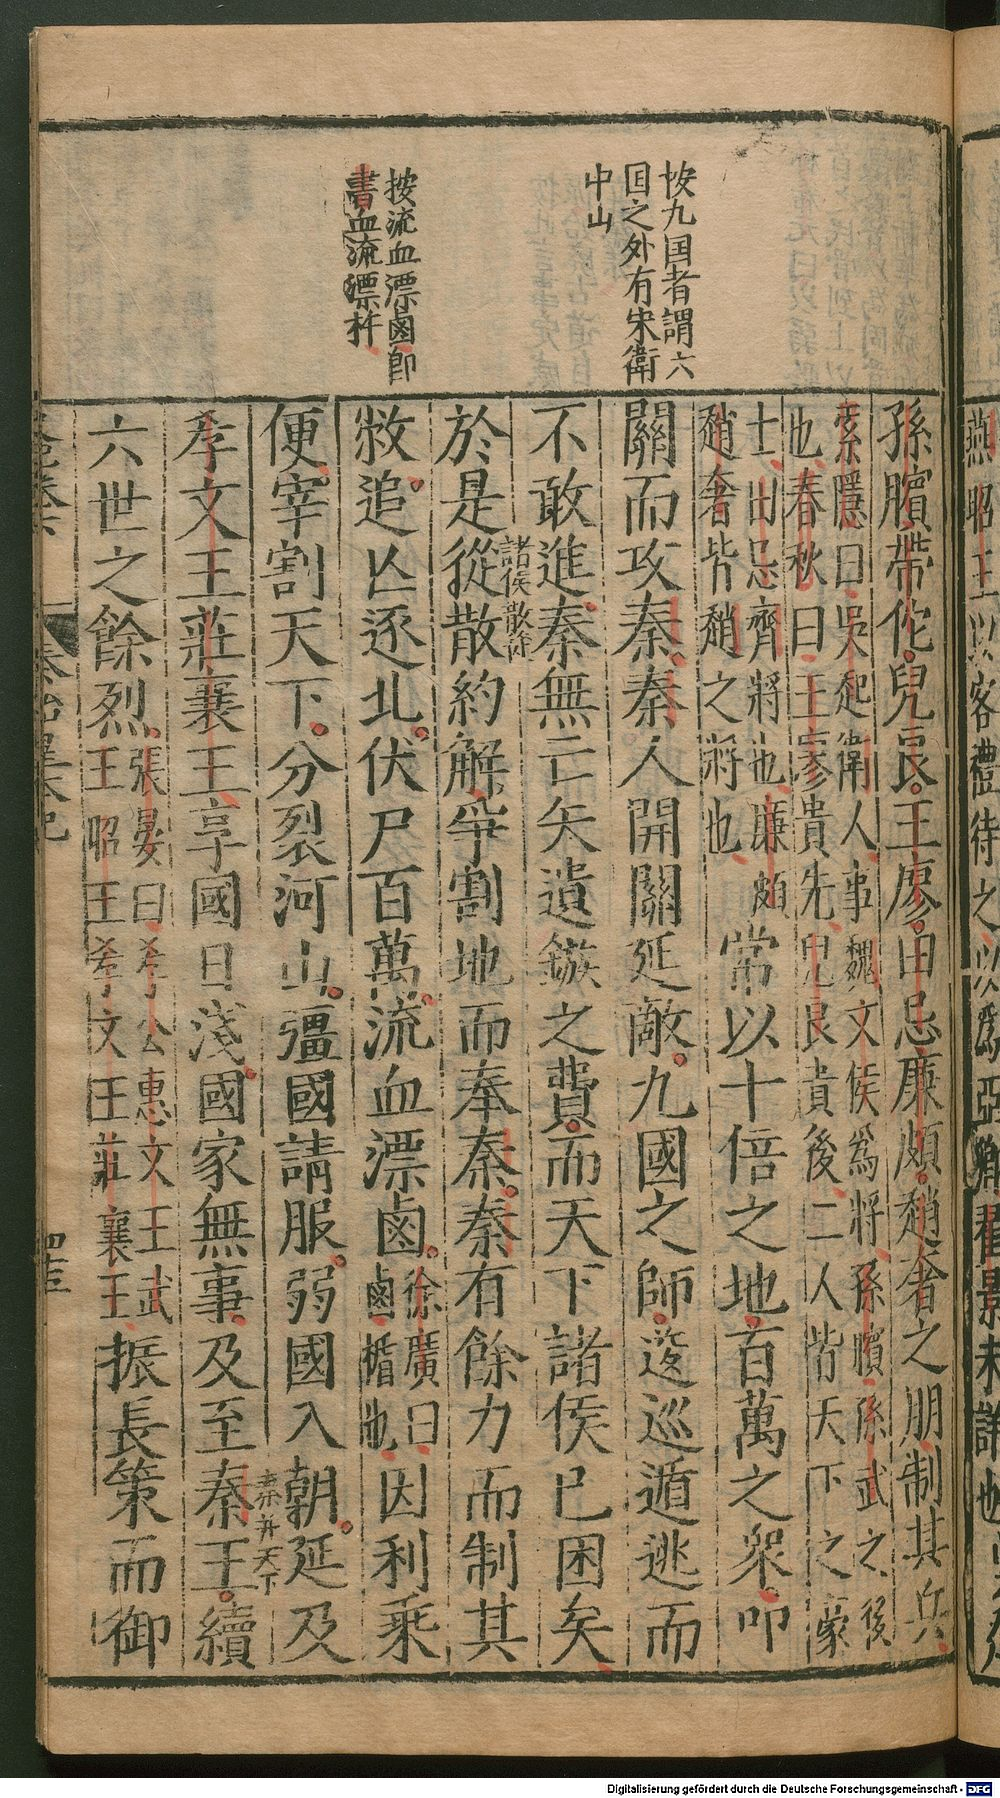 燕昭王以客禮待之以爲亞卿
孫臏帶佗兒良王廖田忌廉頗趙奢之朋制其兵
索隱曰吳起衛人事魏文侯爲將孫臏孫武之後
也春秋曰王廖貴先兒良貴後二人皆天下之豪
士田忌齊將也廉頗
趙奢皆趙之將也
常以十倍之地百萬之眾叩
關而攻秦秦人開關延敵九國之師逡巡遁逃而
不敢進秦無亡矢遺鏃之費而天下諸侯已困矣
諸侯散従
於是從散約解爭割地而奉秦秦有餘力而制其
敝追亾逐北伏尸百萬流血漂鹵
徐廣曰
鹵楯也
因利乘
便宰割天下分裂河山彊國請服弱國入朝延及
秦并天下
孝文王莊襄王享國日淺國家無事及至秦王續
六世之餘烈
張晏曰孝公惠文王武
王昭王孝文王莊襄王
振長策而御
按九国者謂六
国之外有宋衛
中山
按流血漂鹵即
書血流漂杵
秦始皇本紀
Digitalisierung gefördert durch die Deutsche Forschungsgemeinschaft - DFG